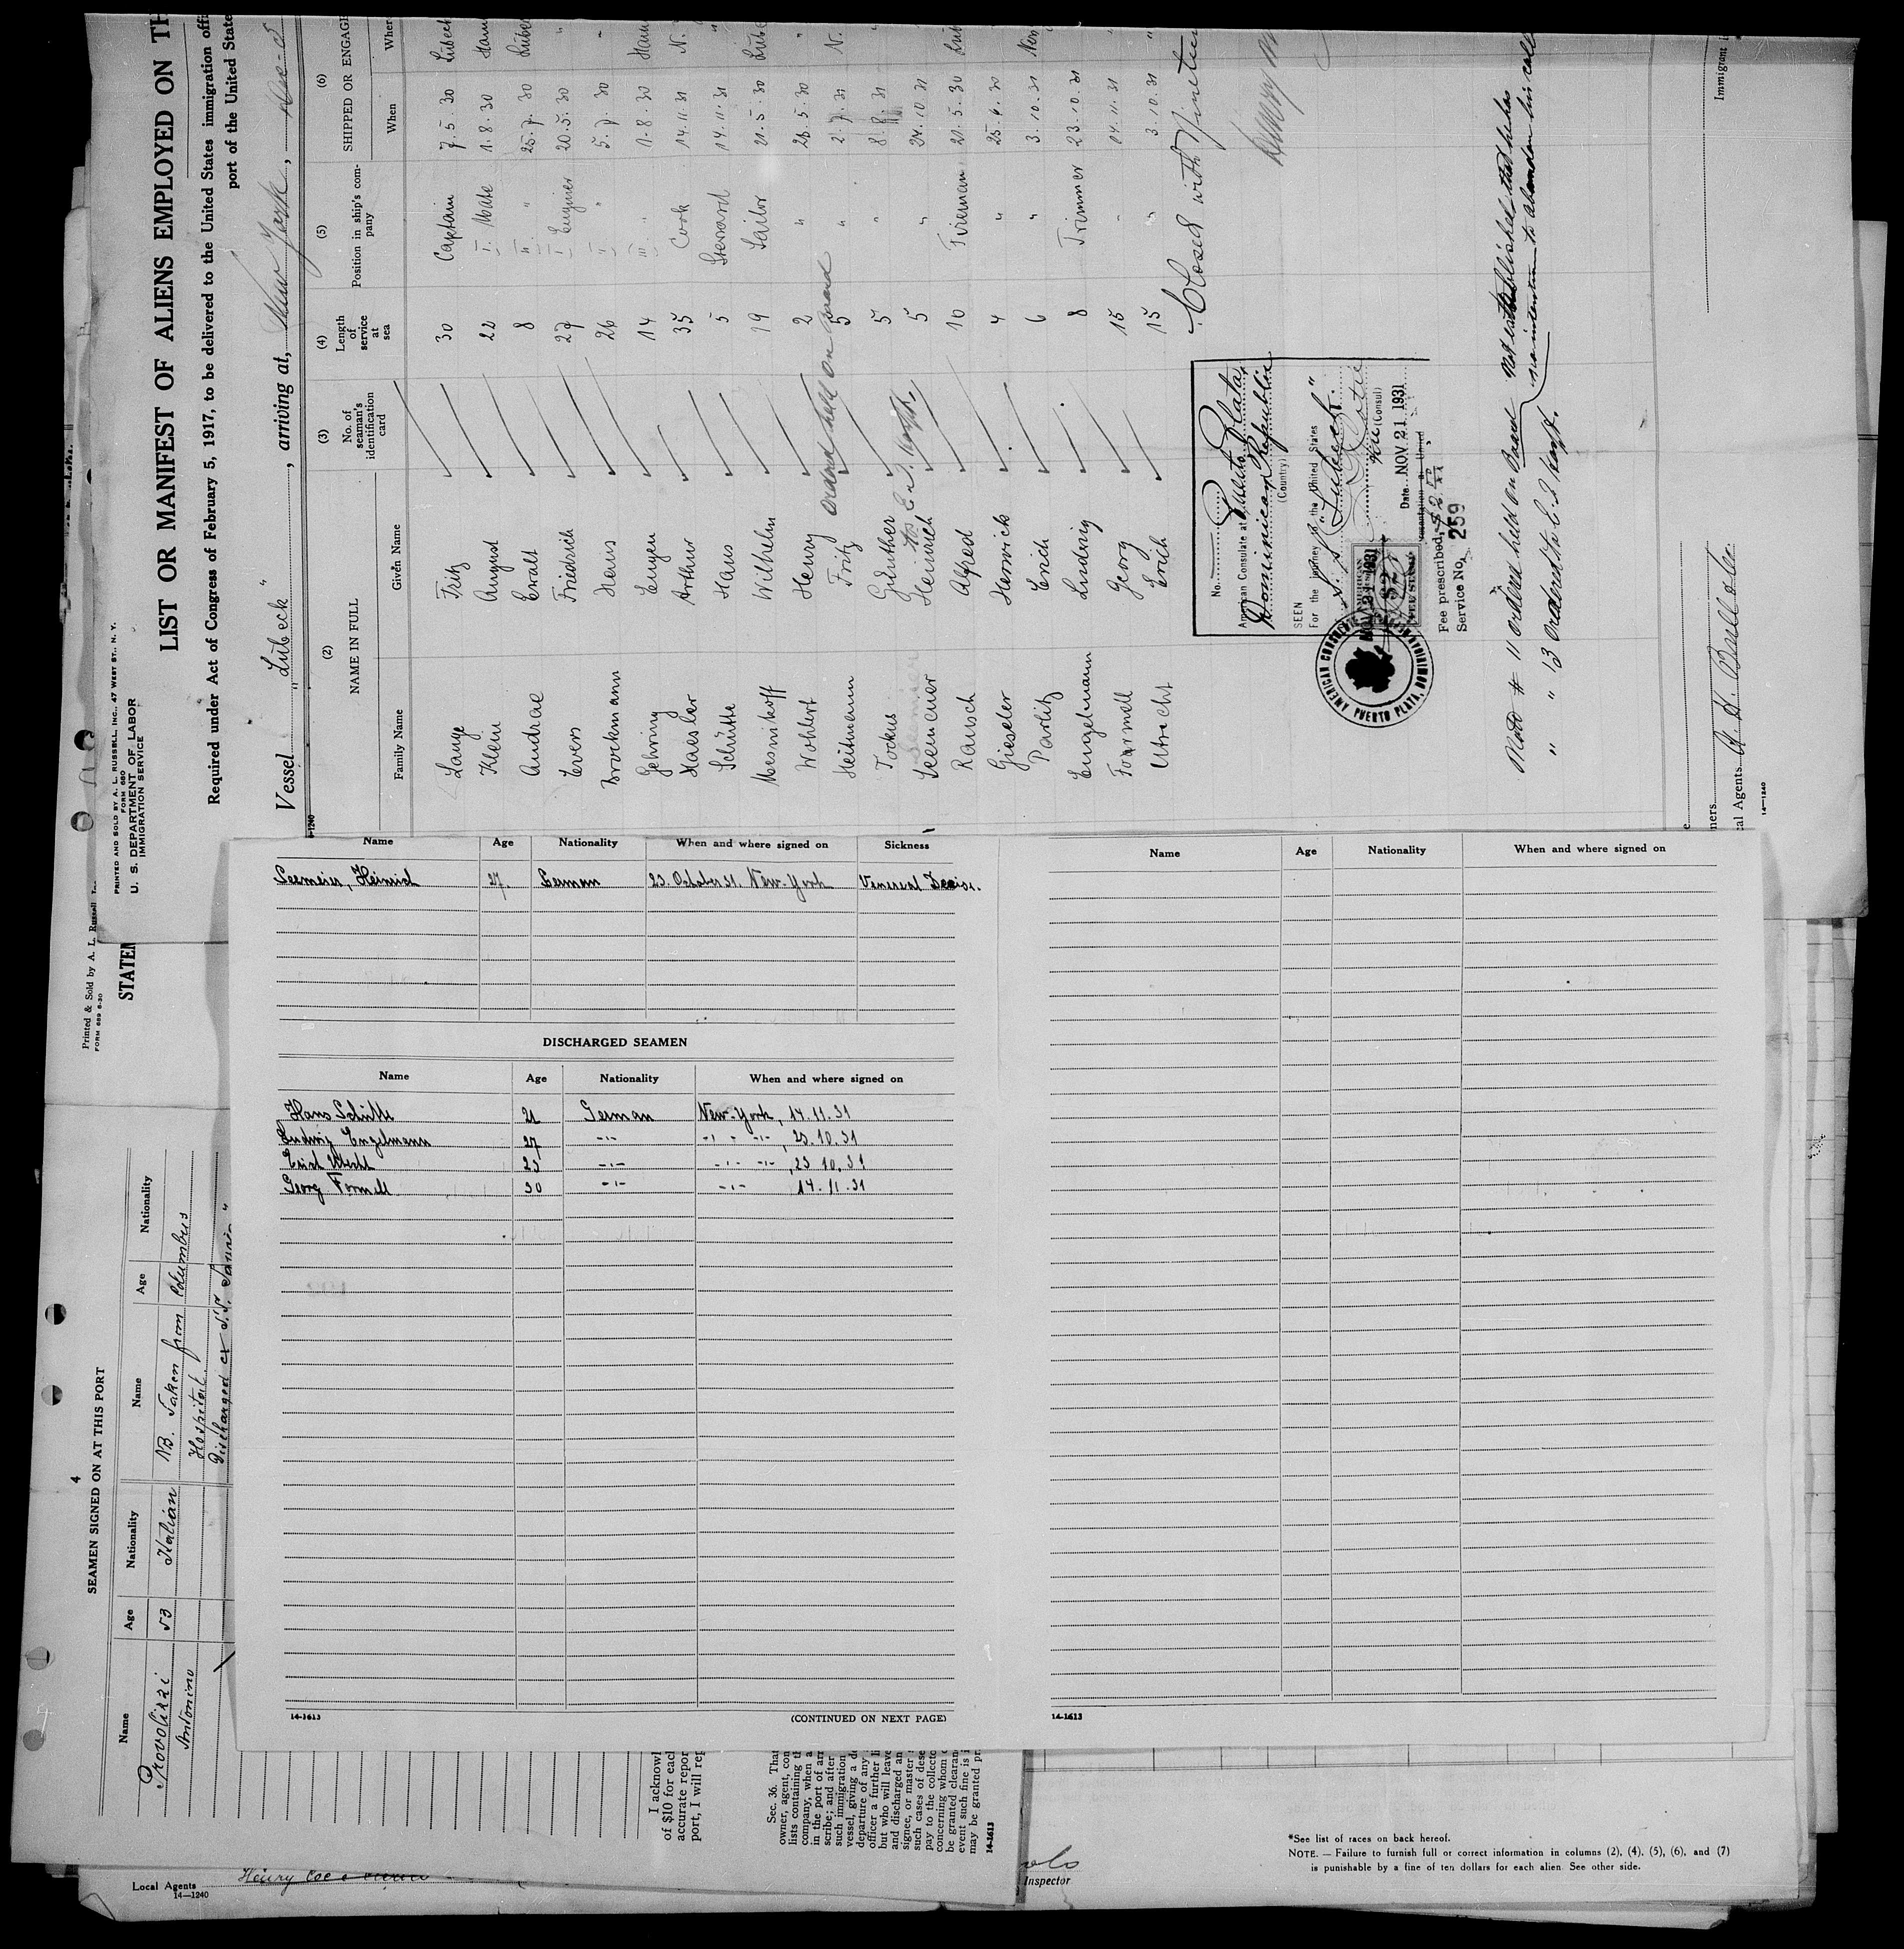 PRINTED AND SOLD BY A. L. RUSSELL, INC., 47 WEST ST., N. Y.
FORM 680
U. S. DEPARTMENT OF LABOR
IMMIGRATION SERVICE
LIST OR MANIFEST OF ALIENS EMPLOYED ON TH
Required under Act of Congress of February 5, 1917, to be delivered to the United States immigration offi
port of the United State
Vessel "Lübeck", arriving at, New York,
(2) (3) (4) (5) (6)
NAME IN FULL
No. of seaman's identification card
Length of service at sea
Position in ship's company
SHIPPED OR ENGAGE
Family Name Given Name When Wher
Lange Fritz 30 Captain 7.5.30 Lübeck
Klein August 22 I. Mate 1.8.30 Ham
Andrae Ewalt 8 II. " 25.7.30 Lübe
Evers Friedrich 27 I Engineer 20.5.30 "
Brockmann Hans 26 II " 5.7.30 "
Gehring Eugen 14 III " 1.8.30 Ham
Haesler Arthur 35 Cook 14.11.31 N.
Schütte Hans 5 Steward 14.11.31 "
Mesnikoff Wilhelm 19 Sailor 21.5.30 Lübe
Wohlert Henry 2 " 26.5.30 "
Heitmann Fritz 5 " 2.7.31 N.
Tockus Günther 5 " 8.8.31 "
Seemeier Heinrich 5 " 24.10.31 "
Rausch Alfred 10 Fireman 21.5.30 Lüb
Gieseler Herwick 4 " 25.6.30 "
Parlitz Erich 6 " 3.10.31 New
Engelmann Ludwig 8 Trimmer 23.10.31
Formell Georg 15 " 14.11.31 "
Utracht Erich 15 " 3.10.31 "
ordered held on board
to E. I. Hosp.
Closed with Nineteen
No.
American Consulate at Puerto Plata,
Dominican Republic
(Country)
SEEN
For the journey to the United States
S.S. "Lubeck".
(Consul)
Date NOV 21 1931
NOV 21 1931
AMERICAN
$2
FEE STAMP
Fee prescribed,
Service No. 259
AMERICAN CONSULAR
PUERTO PLATA, DOMINICAN
Note # 11 ordered held on Board
" " 13 ordered to E. I. Hosp.
Not established that he has
no intention to abandon his calli
Immigrant I
ners
cal Agents A. H. Bull & Co.
14—1240
Printed & Sold by A. L. Russell, Inc.
FORM 689 6-30
STATEM
Name Age Nationality When and where signed on Sickness
Seemeier, Heinrich 27. German 23. October 31. New-York Venereal
DISCHARGED SEAMEN
Name Age Nationality When and where signed on
Hans Schütte 21 German New-York, 14.11.31
Ludwig Engelmann 27 -"- -"- -"-, 23.10.31
Erich Utracht 25 -"- -"- -"-, 23.10.31
Georg Formell 30 -"- -"- 14.11.31
14-1613
(CONTINUED ON NEXT PAGE)
Name Age Nationality When and where signed on
14-1613
4
SEAMEN SIGNED ON AT THIS PORT
Name Age Nationality Name Age Nationality
Provolizzi 53 Italian NB. Taken from Columbus
Antonino Hospital.
Discharged ex S.S.
I acknowl
of $10 for each
accurate repor
port, I will rep
Sec. 36. That
owner, agent, con
lists containing th
company, when a
in the port of arr
scribe; and after
such immigration
vessel, giving a de
departure of any
officer a further li
but who will leave
and discharged an
signee, or master
such cases of dese
pay to the collecto
concerning whom c
be granted clearan
event such fine is i
may be granted pri
14-1613
Local Agents Henry
14—1240
Inspector
*See list of races on back hereof.
NOTE. — Failure to furnish full or correct information in columns (2), (4), (5), (6), and (7)
is punishable by a fine of ten dollars for each alien. See other side.